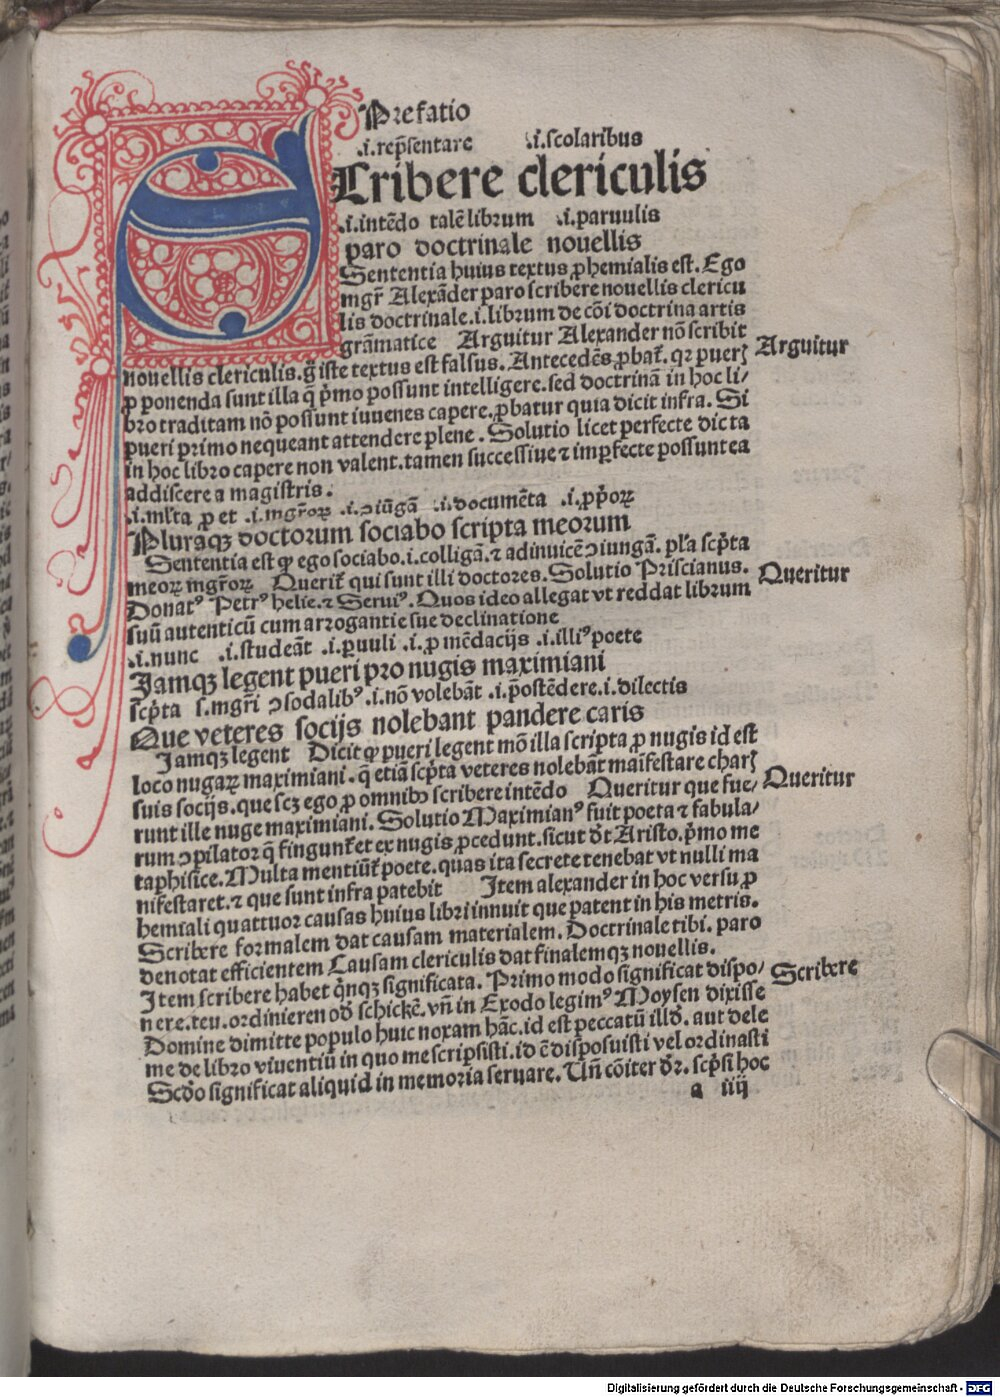 Prefatio
.i.rep̃sentare .i.scolaribus
SCribere clericulis
.i.intẽdo talẽ librum .i.paruulis
paro doctrinale nouellis
Sententia huius textus ꝓhemialis est. Ego
mgr̃ Alexãder paro scribere nouellis clericu
lis doctrinale.i.librum de cõi doctrina artis
grãmatice Arguitur Alexander nõ scribit
Arguitur
nouellis clericulis.g̃ iste textus est falsus. Antecedẽs ꝓbat̃. qꝛ puerꝭ
ꝓ ponenda sunt illa q̃ p̃mo possunt intelligere.sed doctrinã in hoc li⸗
bro traditam nõ possunt iuuenes capere.ꝓbatur quia dicit infra. Si
pueri primo nequeant attendere plene. Solutio licet perfecte dicta
in hoc libro capere non valent.tamen successiue ⁊ imꝑfecte possunt ea
addiscere a magistris.
.i.ml̃ta ꝓ et .i.mgr̃oꝝ .i.ↄiũgã .i.documẽta .i.ꝓp̃oꝝ
Pluraqꝫ doctorum sociabo scripta meorum
Sententia est ꝙ ego sociabo.i.colligã.⁊ adinuicẽ ↄiungã. pl̃a scp̃ta
meoꝝ mgr̃oꝝ Querit̃ qui sunt illi doctores. Solutio Priscianus.
Queritur
Donatꝰ Petrꝰ helie.⁊ Seruiꝰ. Quos ideo allegat vt reddat librum
suũ autenticũ cum arrogantie sue declinatione
.i.nunc .i.studeãt .i.ꝑuuli .i.ꝓ mẽdacijs .i.illiꝰ poete
Jamqꝫ legent pueri pro nugis maximiani
scp̃ta s.mgr̃i ↄsodalibꝰ .i.nõ volebãt .i.p̃ostẽdere.i.dilectis
Que veteres socijs nolebant pandere caris
Jamqꝫ legent Dicit ꝙ pueri legent mõ illa scripta ꝓ nugis id est
loco nugaꝝ maximiani. q̃ etiã scp̃ta veteres nolebãt maĩfestare charꝭ
suis socijs.que scꝫ ego ꝓ omnibꝰ scribere intẽdo Queritur que fue⸗
Queritur
runt ille nuge maximiani. Solutio Maximianꝰ fuit poeta ⁊ fabula⸗
rum ↄpilator q̃ fingunt̃ et ex nugis ꝓcedunt.sicut dt̃ Aristo.p̃mo me
taphisice. Multa mentiũt̃ poete.quas ita secrete tenebat vt nulli ma
nifestaret.⁊ que sunt infra patebit Item alexander in hoc versu ꝓ
hemiali quattuor causas huius libri innuit que patent in his metris.
Scribere formalem dat causam materialem. Doctrinale tibi. paro
denotat efficientem Causam clericulis dat finalemqꝫ nouellis.
Item scribere habet qͥnqꝫ significata. Primo modo significat dispo⸗
Scribere
nere.teu.ordinieren od̃ schickẽ. vñ in Exodo legimꝰ Moysen dixisse
Domine dimitte populo huic noxam hãc.id est peccatũ illd̃. aut dele
me de libro viuentiũ in quo me scripsisti.id ẽ disposuisti vel ordinasti
Scd̃o significat aliquid in memoria seruare. Vñ cõiter dr̃. scp̃si hoc
a iiij
Digitalisierung gefördert durch die Deutsche Forschungsgemeinschaft - DFG